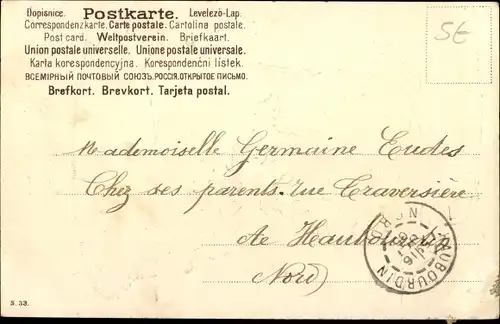 Dopisnice. Postkarte. Levelező-Lap.
Correspondenzkarte. Carte postale. Cartolina postale.
Post card. Weltpostverein. Briefkaart.
Union postale universelle. Unione postale universale.
Karta korespondencyjna. Korespondenční lístek.
ВСЕМІРНЫЙ ПОЧТОВЫЙ СОЮЗЪ. РОССІЯ. ОТКРЫТОЕ ПИСЬМО.
Brefkort. Brevkort. Tarjeta postal.
5E
Mademoiselle Germaine Eudes
Chez ses parents. rue Traversière
HAUBOURDIN
NORD
Nord)
5. 33.